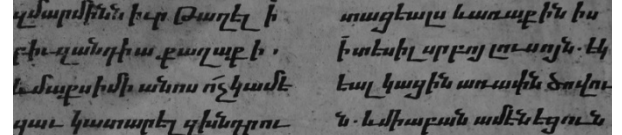 զմարմինն իւր թաղել ի
բիւզանդիա. քաղաք ի.
և մաքսիմիանոս ո՛չ կամե
ցաւ կատարել զխնդրու
տացեալս և առաքին իս
ի տեսիլ սրբոյ լուսոյն. եկ
եալ կացին առափն ծովու
ն. և միաբան ամէնեցուն